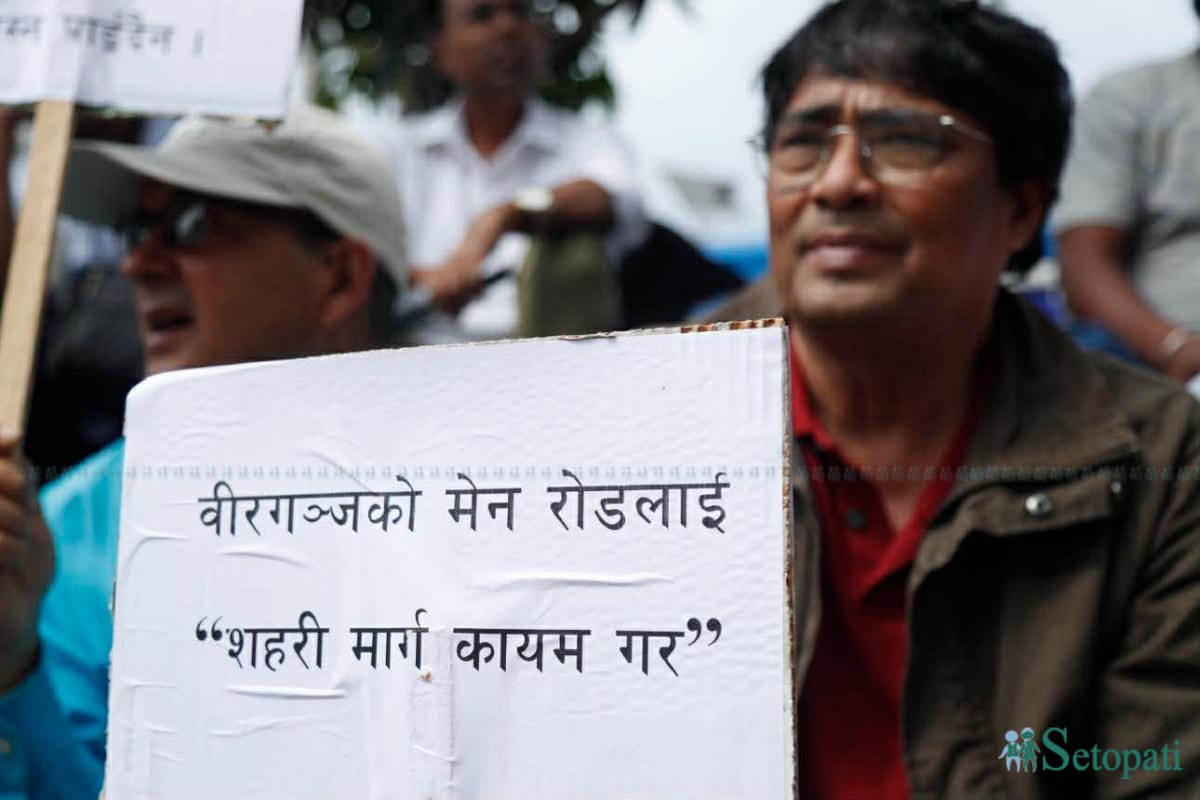 पाईदैन ।
वीरगञ्जको मेन रोडलाई
“शहरी मार्ग कायम गर”
Setopati